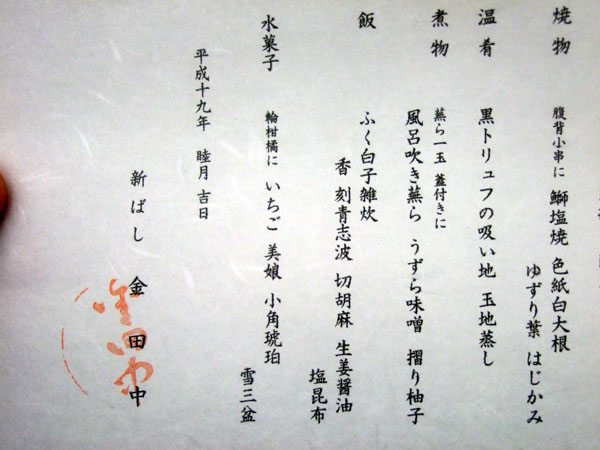 焼物
腹背小串に 鰤塩焼 色紙白大根
ゆずり葉 はじかみ
温肴
黒トリュフの吸い地 玉地蒸し
煮物
蕪ら一玉 蓋付きに
風呂吹き蕪ら うずら味噌 摺り柚子
飯
ふく白子雑炊
香 刻青志波 切胡麻 生姜醤油
塩昆布
水菓子
輪柑橘に いちご 美娘 小角琥珀
雪三盆
平成十九年 睦月 吉日
新ばし 金田中
金田中